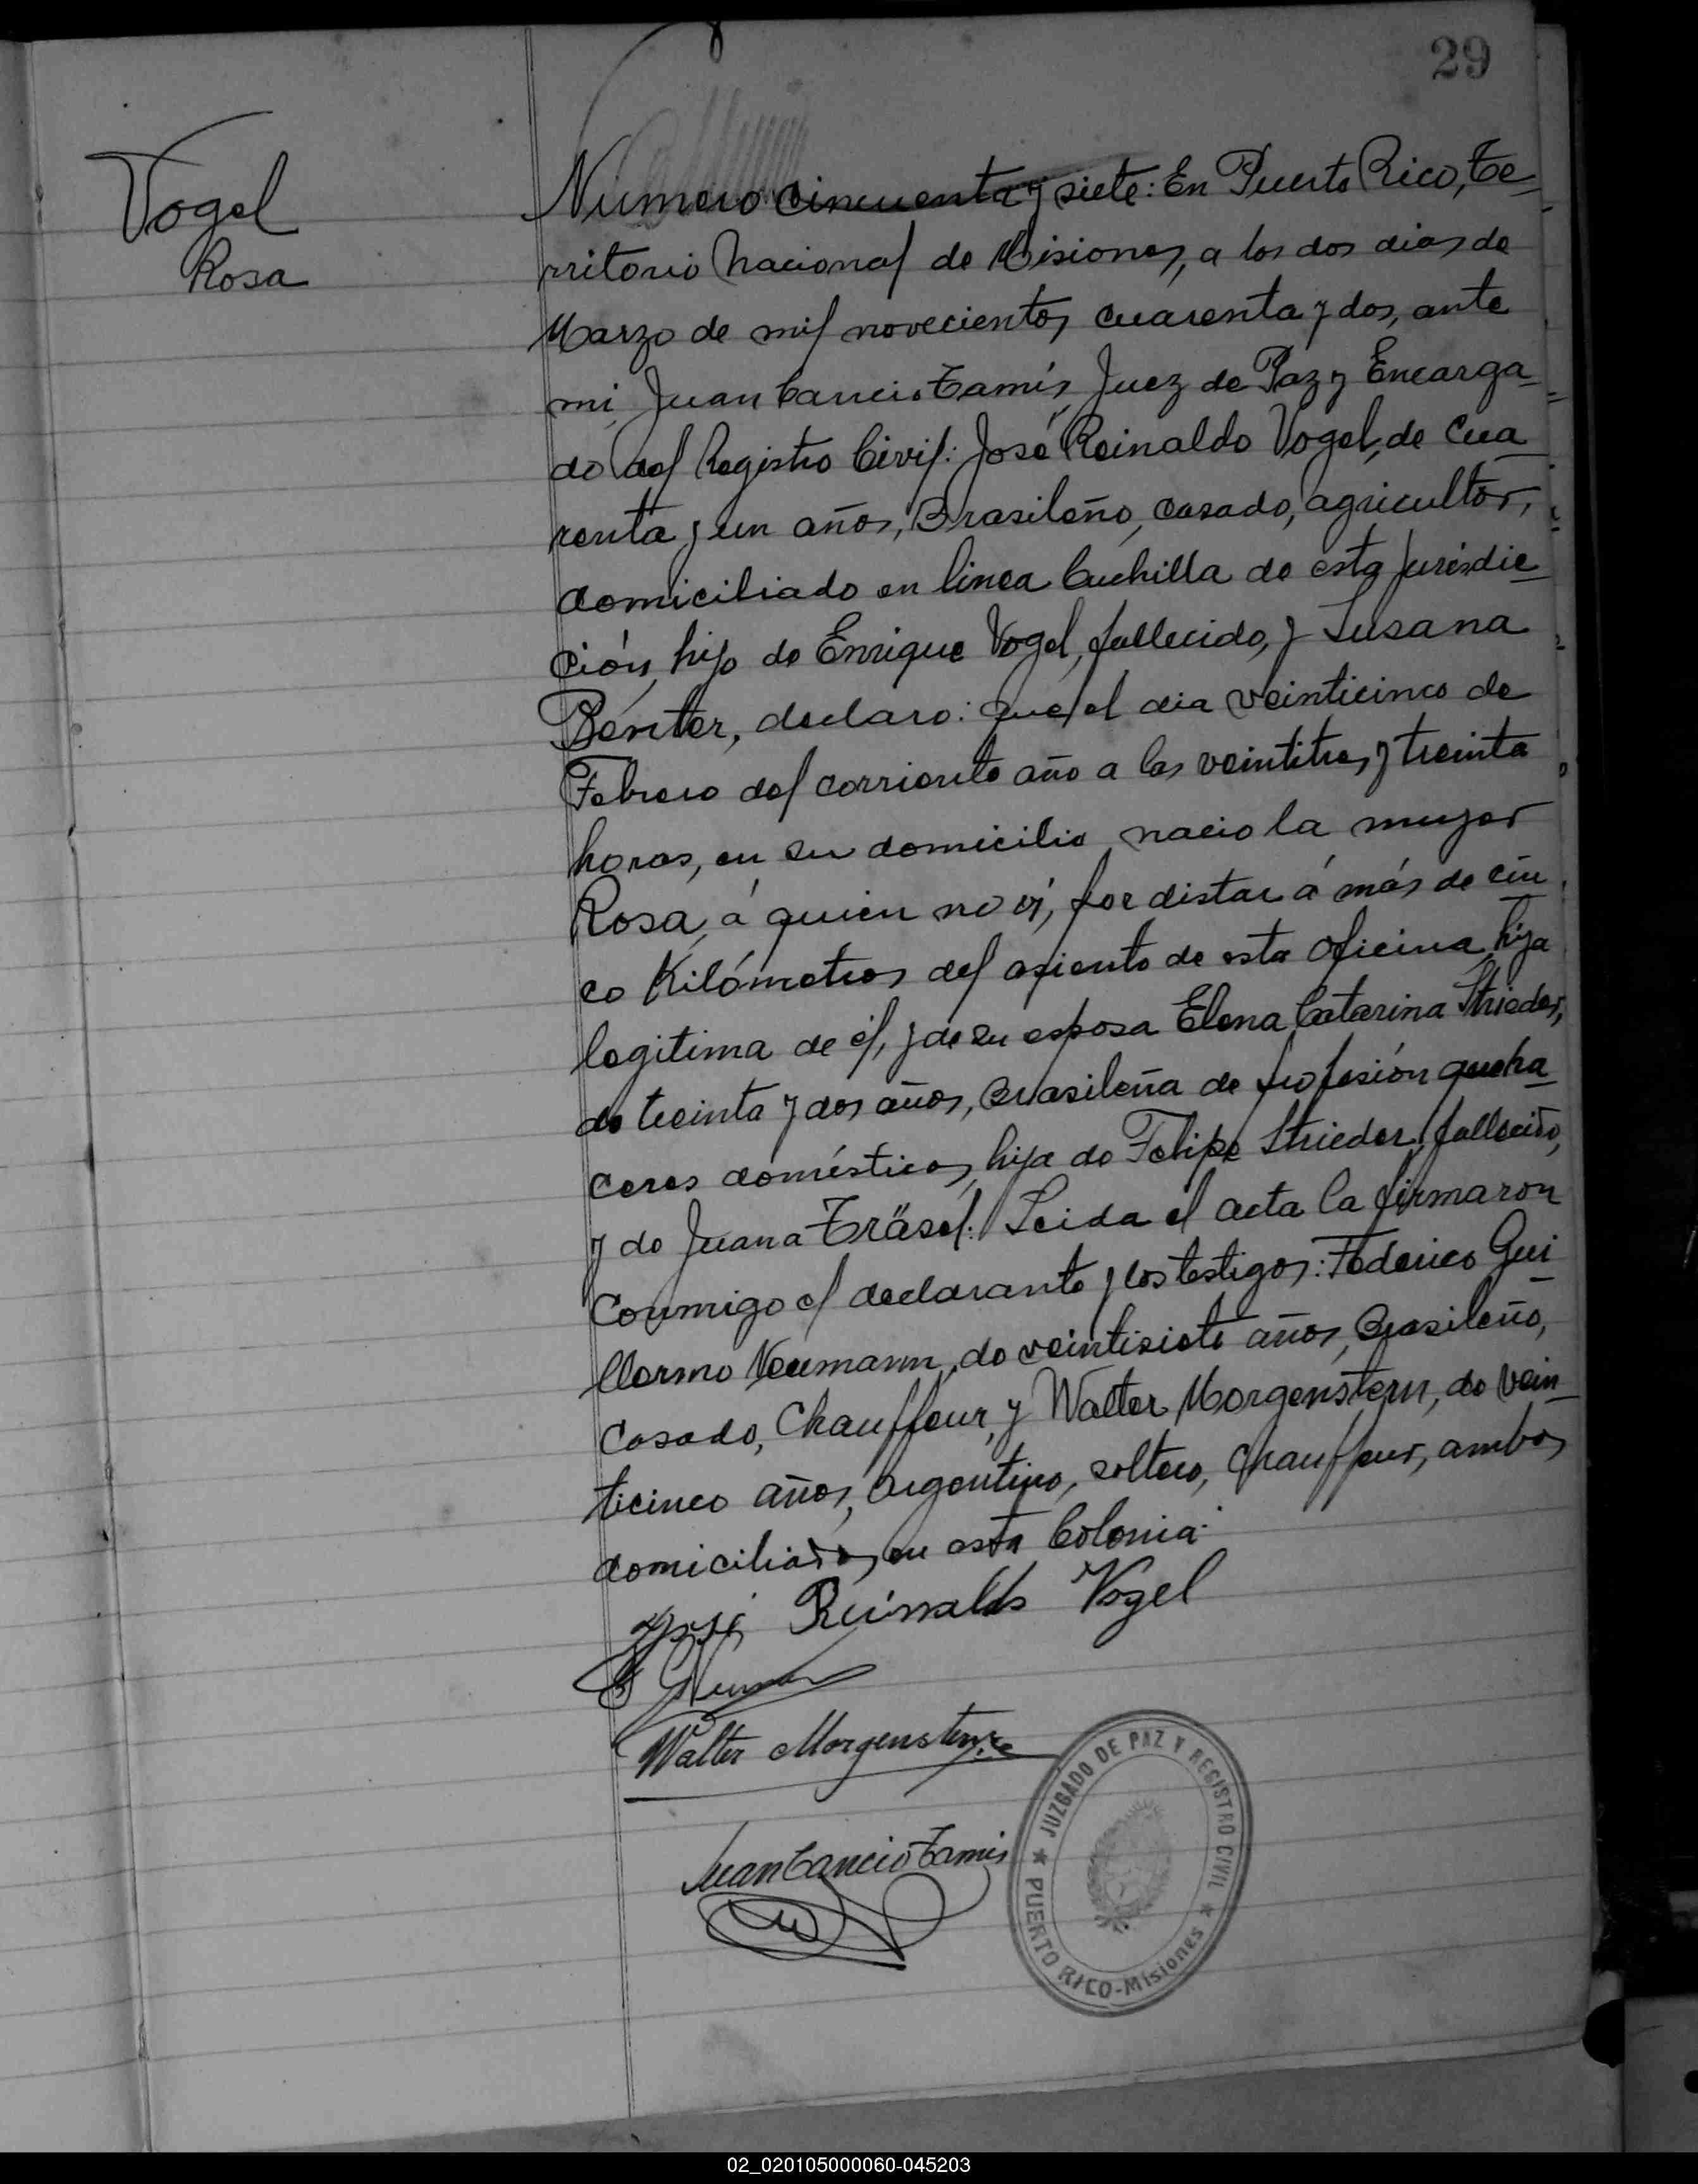 29
Vogel
Rosa
Numero cincuenta y siete: En Puerto Rico, te-
rritorio nacional de Misiones, a los dos dias de
Marzo de mil novecientos cuarenta y dos, ante
mi Juan Cancio Tamis Juez de Paz y Encarga=
do del Registro Civil: José Reinaldo Vogel, de cua-
renta y un años, Brasileño, casado, agricultor,
domiciliado en linea Cuchilla de esta jurisdic-
ción, hijo de Enrique Vogel, fallecido, y Susana
declaro: que el dia veinticinco de
Febrero del corriente año a las veintitres y treinta
horas, en su domicilio nacio la mujer
Rosa, á quien no vi, por distar á más de cin
co Kilómetros del asiento de esta oficina, hija
legitima de él, y de su esposa Elena Catarina Strieder,
de treinta y dos años, Brasileña de profesión queha-
ceres domésticos, hija de Felipe Strieder, fallecido,
y de Juana Träsel: Leida el acta la firmaron
conmigo el declarante y los testigos: Federico Gui-
llermo Neumann, de veintisiete años, Brasileño,
casado, Chauffeur, y Walter Morgenstern, de vein-
ticinco años, Argentino, soltero, Chauffeur, ambos
domiciliados en esta Colonia:
José Reinaldo Vogel
Walter Morgenstern
Juan Cancio Tamis
JUZGADO DE PAZ Y REGISTRO CIVIL
PUERTO RICO-Misiones
02_020105000060-045203